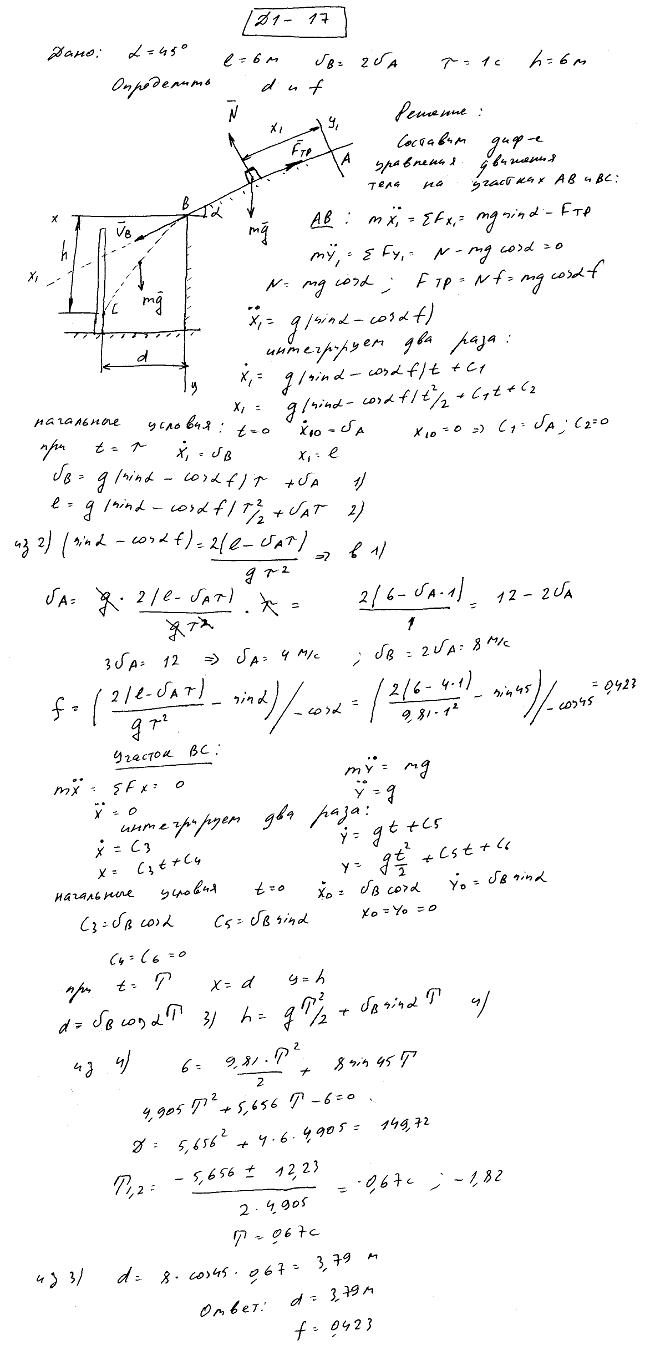 Д1 - 17
Дано: α = 45° l = 6 м υB = 2υA τ = 1 с h = 6 м
Определить d и f
Решение:
Составим диф-е
уравнения движения
тела на участках АВ и ВС:
N̄
x₁
y₁
F̄тр
A
x
B
α
mḡ
V̄B
h
x₁
mḡ
C
d
y
АВ: mẍ₁ = ΣFx₁ = mg sinα - Fтр
mÿ₁ = ΣFy₁ = N - mg cosα = 0
N = mg cosα; Fтр = Nf = mg cosα f
ẍ₁ = g(sinα - cosα f)
интегрируем два раза:
ẋ₁ = g(sinα - cosα f)t + C₁
x₁ = g(sinα - cosα f)t²/2 + C₁t + C₂
начальные условия: t=0 ẋ₁₀ = υA x₁₀ = 0 ⇒ C₁ = υA; C₂=0
при t = τ ẋ₁ = υB x₁ = l
υB = g(sinα - cosα f)τ + υA 1)
l = g(sinα - cosα f)τ²/2 + υAτ 2)
из 2) (sinα - cosα f) = 2(l - υAτ)/gτ² ⇒ в 1)
υA = g · 2(l - υAτ)/gτ² · τ = 2(6 - υA·1)/1 = 12 - 2υA
3υA = 12 ⇒ υA = 4 м/с ; υB = 2υA = 8 м/с
f = (2(l - υAτ)/gτ² - sinα)/-cosα = (2(6 - 4·1)/9,81·1² - sin45)/-cos45 = 0,423
Участок ВС:
mẍ = ΣFx = 0 mÿ = mg
ẍ = 0 ÿ = g
интегрируем два раза:
ẋ = C₃ ẏ = gt + C₅
x = C₃t + C₄ y = gt²/2 + C₅t + C₆
начальные условия t=0 ẋ₀ = υB cosα ẏ₀ = υB sinα
C₃ = υB cosα C₅ = υB sinα x₀ = y₀ = 0
C₄ = C₆ = 0
при t = T x = d y = h
d = υB cosα T 3) h = gT²/2 + υB sinα T 4)
из 4) 6 = 9,81·T²/2 + 8 sin45 T
4,905T² + 5,656 T - 6 = 0.
D = 5,656² + 4·6·4,905 = 149,72
T₁,₂ = (-5,656 ± 12,23)/(2·4,905) = 0,67с ; -1,82
T = 0,67с
из 3) d = 8·cos45·0,67 = 3,79 м
Ответ: d = 3,79 м
f = 0,423